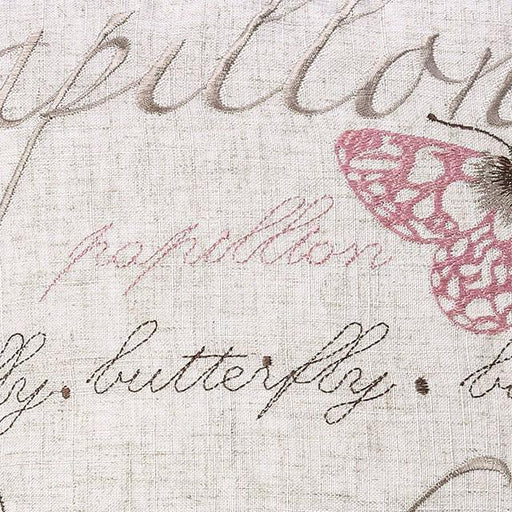 apillon
papillon
ly. butterfly. bu